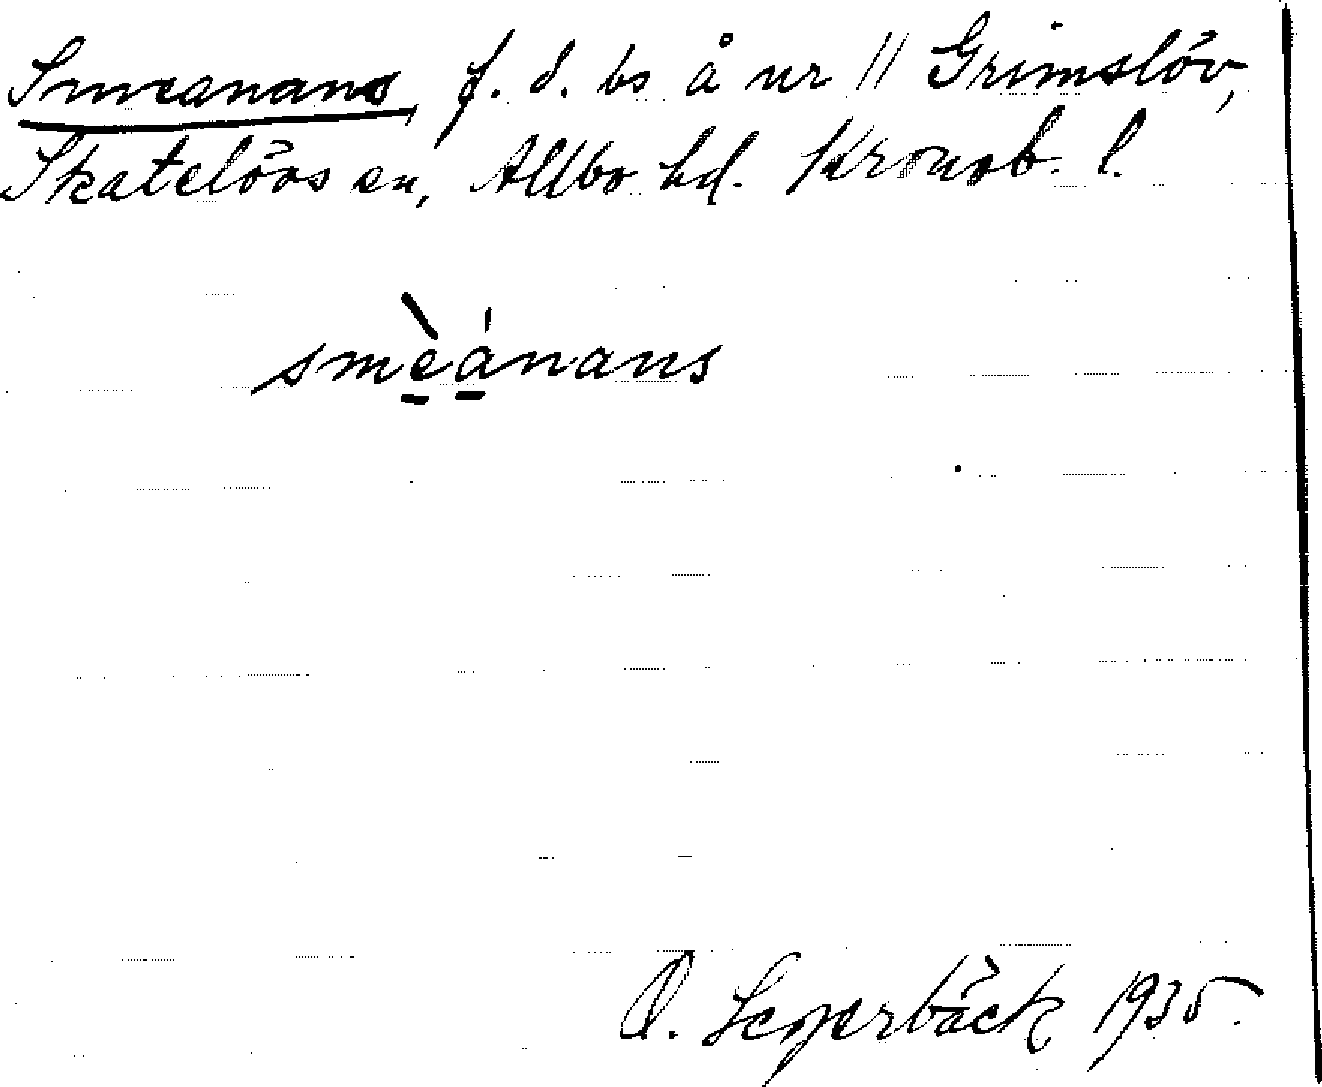 Smeanans, f. d. bs å nr 11 Grimslöv,
Skatelövs sn, Allbo hd. Kronob. l.
smèánans
O. Segerbäck 1935.